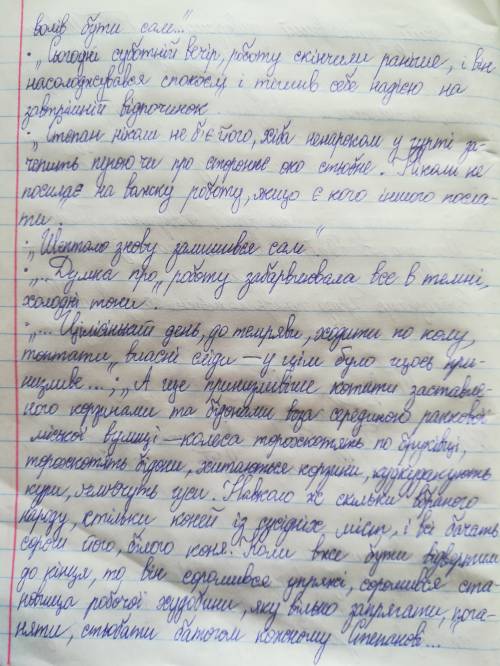 волів бути сам..."
· „Сьогодні суботній вечір, роботу скінчили раніше, і він
насолоджувався спокоєм і тішив себе надією на
завтрішній відпочинок
· „Степан ніколи не б'є його, хіба ненароком у гурті за-
чепить пугою чи про стороннє око стьобне. Ніколи не
посилає на важку роботу, якщо є кого іншого посла-
ти".
· „Шептало знову залишився сам"
· „... Думка про роботу забарвлювала все в темні,
холодні тони".
· „... Цілісінький день, до темряви, ходити по колу,
топтати власні сліди — у цім було щось при-
низливе...; „А ще принизливіше котити заставле-
ного корзинами та бідонами воза серединою ранкової
міської вулиці — колеса тороскотять по бруківці,
тороскотять бідони, хитаються корзини, кудкудакують
кури, ґелґочуть гуси. Навколо ж скільки
народу, стільки коней із сусідніх місць, і всі бачать
сором його, білого коня. Коли вже бути відвертим
до кінця, то він соромився упряжі, соромився ста-
новища робочої худобини, яку вільно запрягати, пога-
няти, стьобати батогом кожному Степанові..."